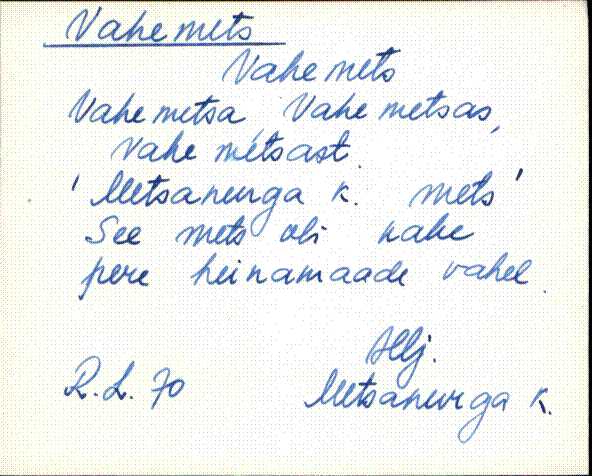 Vahe mets
Vahe mets
Vahe metsa Vahe metsas,
Vahe metsast.
' Metsanurga k. mets '
See mets oli kahe
pere heinamaade vahel.
Hlj.
R.L. 70 Metsanurga k.